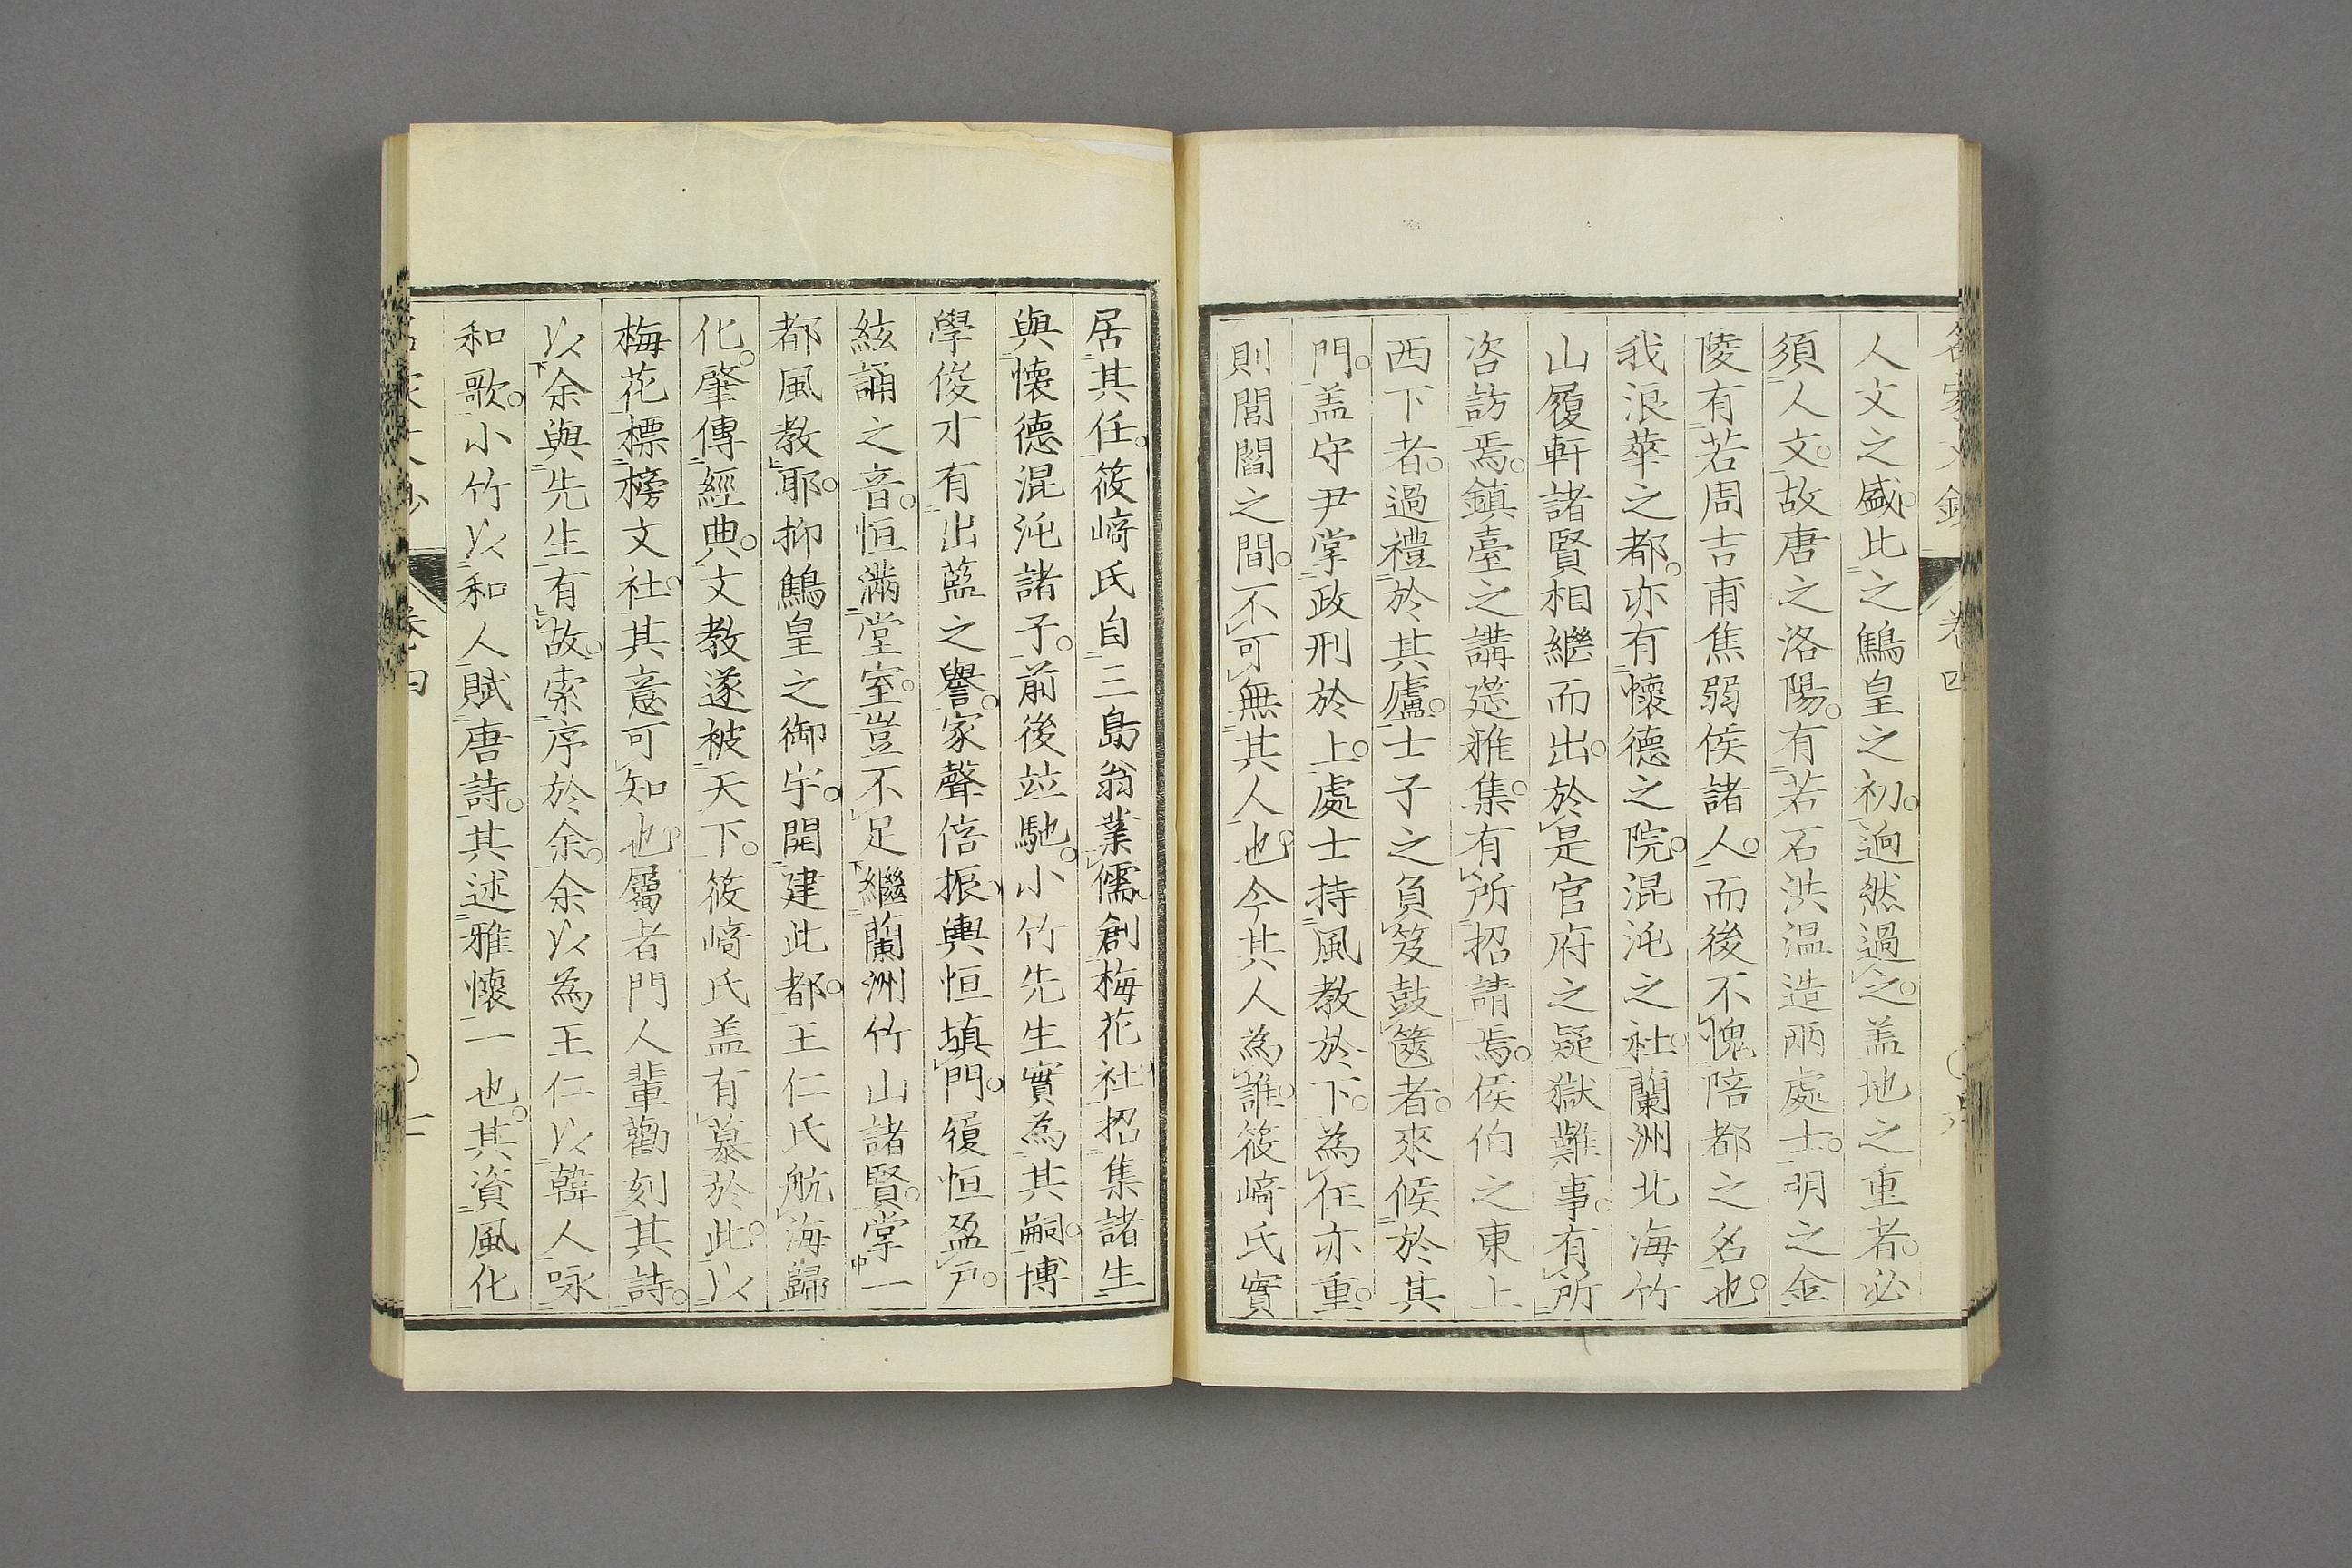 人文之盛。比之鷦皇之初。逈然過之。盖地之重者。必
須人文。故唐之洛陽。有若石洪温造兩處士。明之金
陵有若周吉甫焦弱侯諸人。而後不愧陪都之名也。
我浪華之都。亦有懷德之院。混沌之社。蘭洲北海竹
山履軒諸賢相繼而出。於是官府之疑獄難事。有所
咨訪焉。鎮臺之講莚雅集。有所招請焉。侯伯之東上
西下者。過禮於其廬。士子之負笈鼓篋者。來候於其
門。盖守尹掌政刑於上。處士持風教於下。為任亦重。
則閭閻之間。不可無其人也。今其人為誰。筱﨑氏實
居其任。筱﨑氏自三島翁業儒。創梅花社。招集諸生
與懐德混沌諸子。前後竝馳。小竹先生實為其嗣。博
學俊才有出藍之譽。家聲倍振。輿恒填門。履恒盈戸。
絃誦之音。恒滿堂室。豈不足繼蘭洲竹山諸賢。掌一
都風教耶。抑鷦皇之御宇。開建此都。王仁氏航海歸
化。肇傳經典。文教遂被天下。筱﨑氏盖有慕於此。以
梅花標榜文社。其意可知也。屬者門人輩勸刻其詩。
以余與先生有故。索序於余。余以為王仁以韓人咏
和歌。小竹以和人賦唐詩。其述雅懷一也。其資風化
卷四